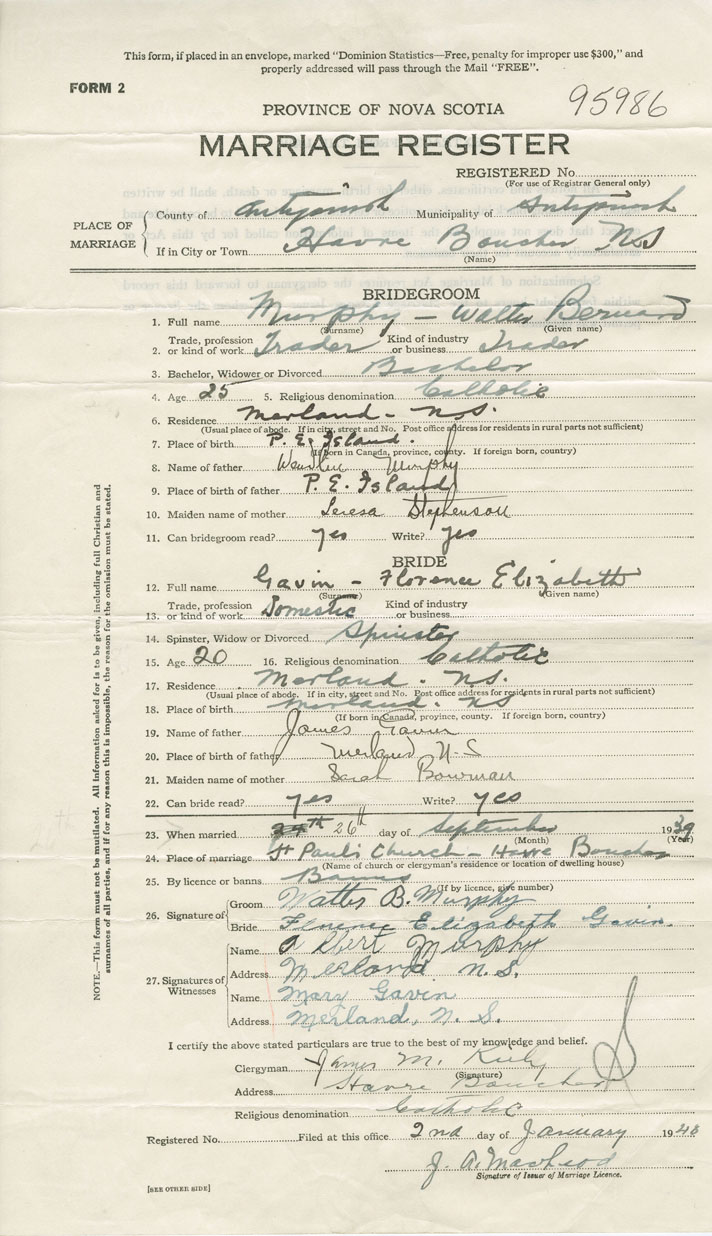 This form, if placed in an envelope, marked "Dominion Statistics—Free, penalty for improper use $300," and
properly addressed will pass through the Mail "FREE".
FORM 2
95986
PROVINCE OF NOVA SCOTIA
MARRIAGE REGISTER
REGISTERED No.
(For use of Registrar General only)
PLACE OF MARRIAGE
County of Antigonish Municipality of Antigonish
If in City or Town Havre Boucher N.S
(Name)
BRIDEGROOM
1. Full name Murphy — Walter Bernard
(Surname) (Given name)
2. Trade, profession or kind of work Trader Kind of industry or business Trader
3. Bachelor, Widower or Divorced Bachelor
4. Age 25 5. Religious denomination Catholic
6. Residence Merland - N.S.
(Usual place of abode. If in city, street and No. Post office address for residents in rural parts not sufficient)
7. Place of birth P. E. Island.
(If born in Canada, province, county. If foreign born, country)
8. Name of father Murphy
9. Place of birth of father P. E. Island
10. Maiden name of mother Teresa Stephenson
11. Can bridegroom read? yes Write? yes
BRIDE
12. Full name Gavin — Florence Elizabeth
(Surname) (Given name)
13. Trade, profession or kind of work Domestic Kind of industry or business
14. Spinster, Widow or Divorced Spinster
15. Age 20 16. Religious denomination Catholic
17. Residence Merland. N.S.
(Usual place of abode. If in city, street and No. Post office address for residents in rural parts not sufficient)
18. Place of birth Merland. NS
(If born in Canada, province, county. If foreign born, country)
19. Name of father James Gavin
20. Place of birth of father Merland N-S
21. Maiden name of mother Sarah Bowman
22. Can bride read? yes Write? yes
23. When married 26th day of September 1939
(Month) (Year)
24. Place of marriage St Paul's Church - Havre Boucher
(Name of church or clergyman's residence or location of dwelling house)
25. By licence or banns Banns
(If by licence, give number)
26. Signature of
Groom Walter B. Murphy
Bride Florence Elizabeth Gavin.
27. Signatures of Witnesses
Name Albert Murphy
Address Merland N.S.
Name Mary Gavin
Address Merland, N. S.
I certify the above stated particulars are true to the best of my knowledge and belief.
Clergyman James M.
(Signature)
Address Havre Boucher
Religious denomination Catholic
Registered No. Filed at this office 2nd day of January 19
J. A. MacLeod
Signature of Issuer of Marriage Licence.
[SEE OTHER SIDE]
NOTE.—This form must not be mutilated. All information asked for is to be given, including full Christian and
surnames of all parties, and if for any reason this is impossible, the reason for the omission must be stated.